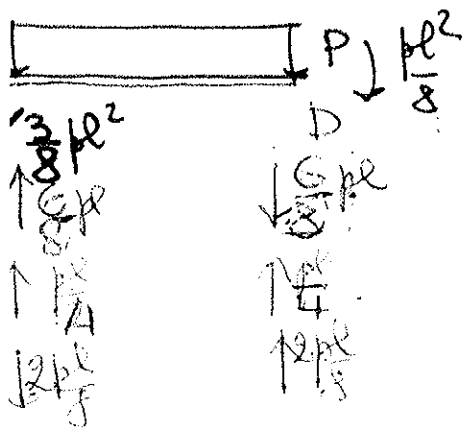 P ↓ pl²/8
3/8 pl² D
↑ 6/8 pl ↓ 6/8 pl
↑ pl/4 ↑ pl/4
↓ 2pl/8 ↑ 2pl/8